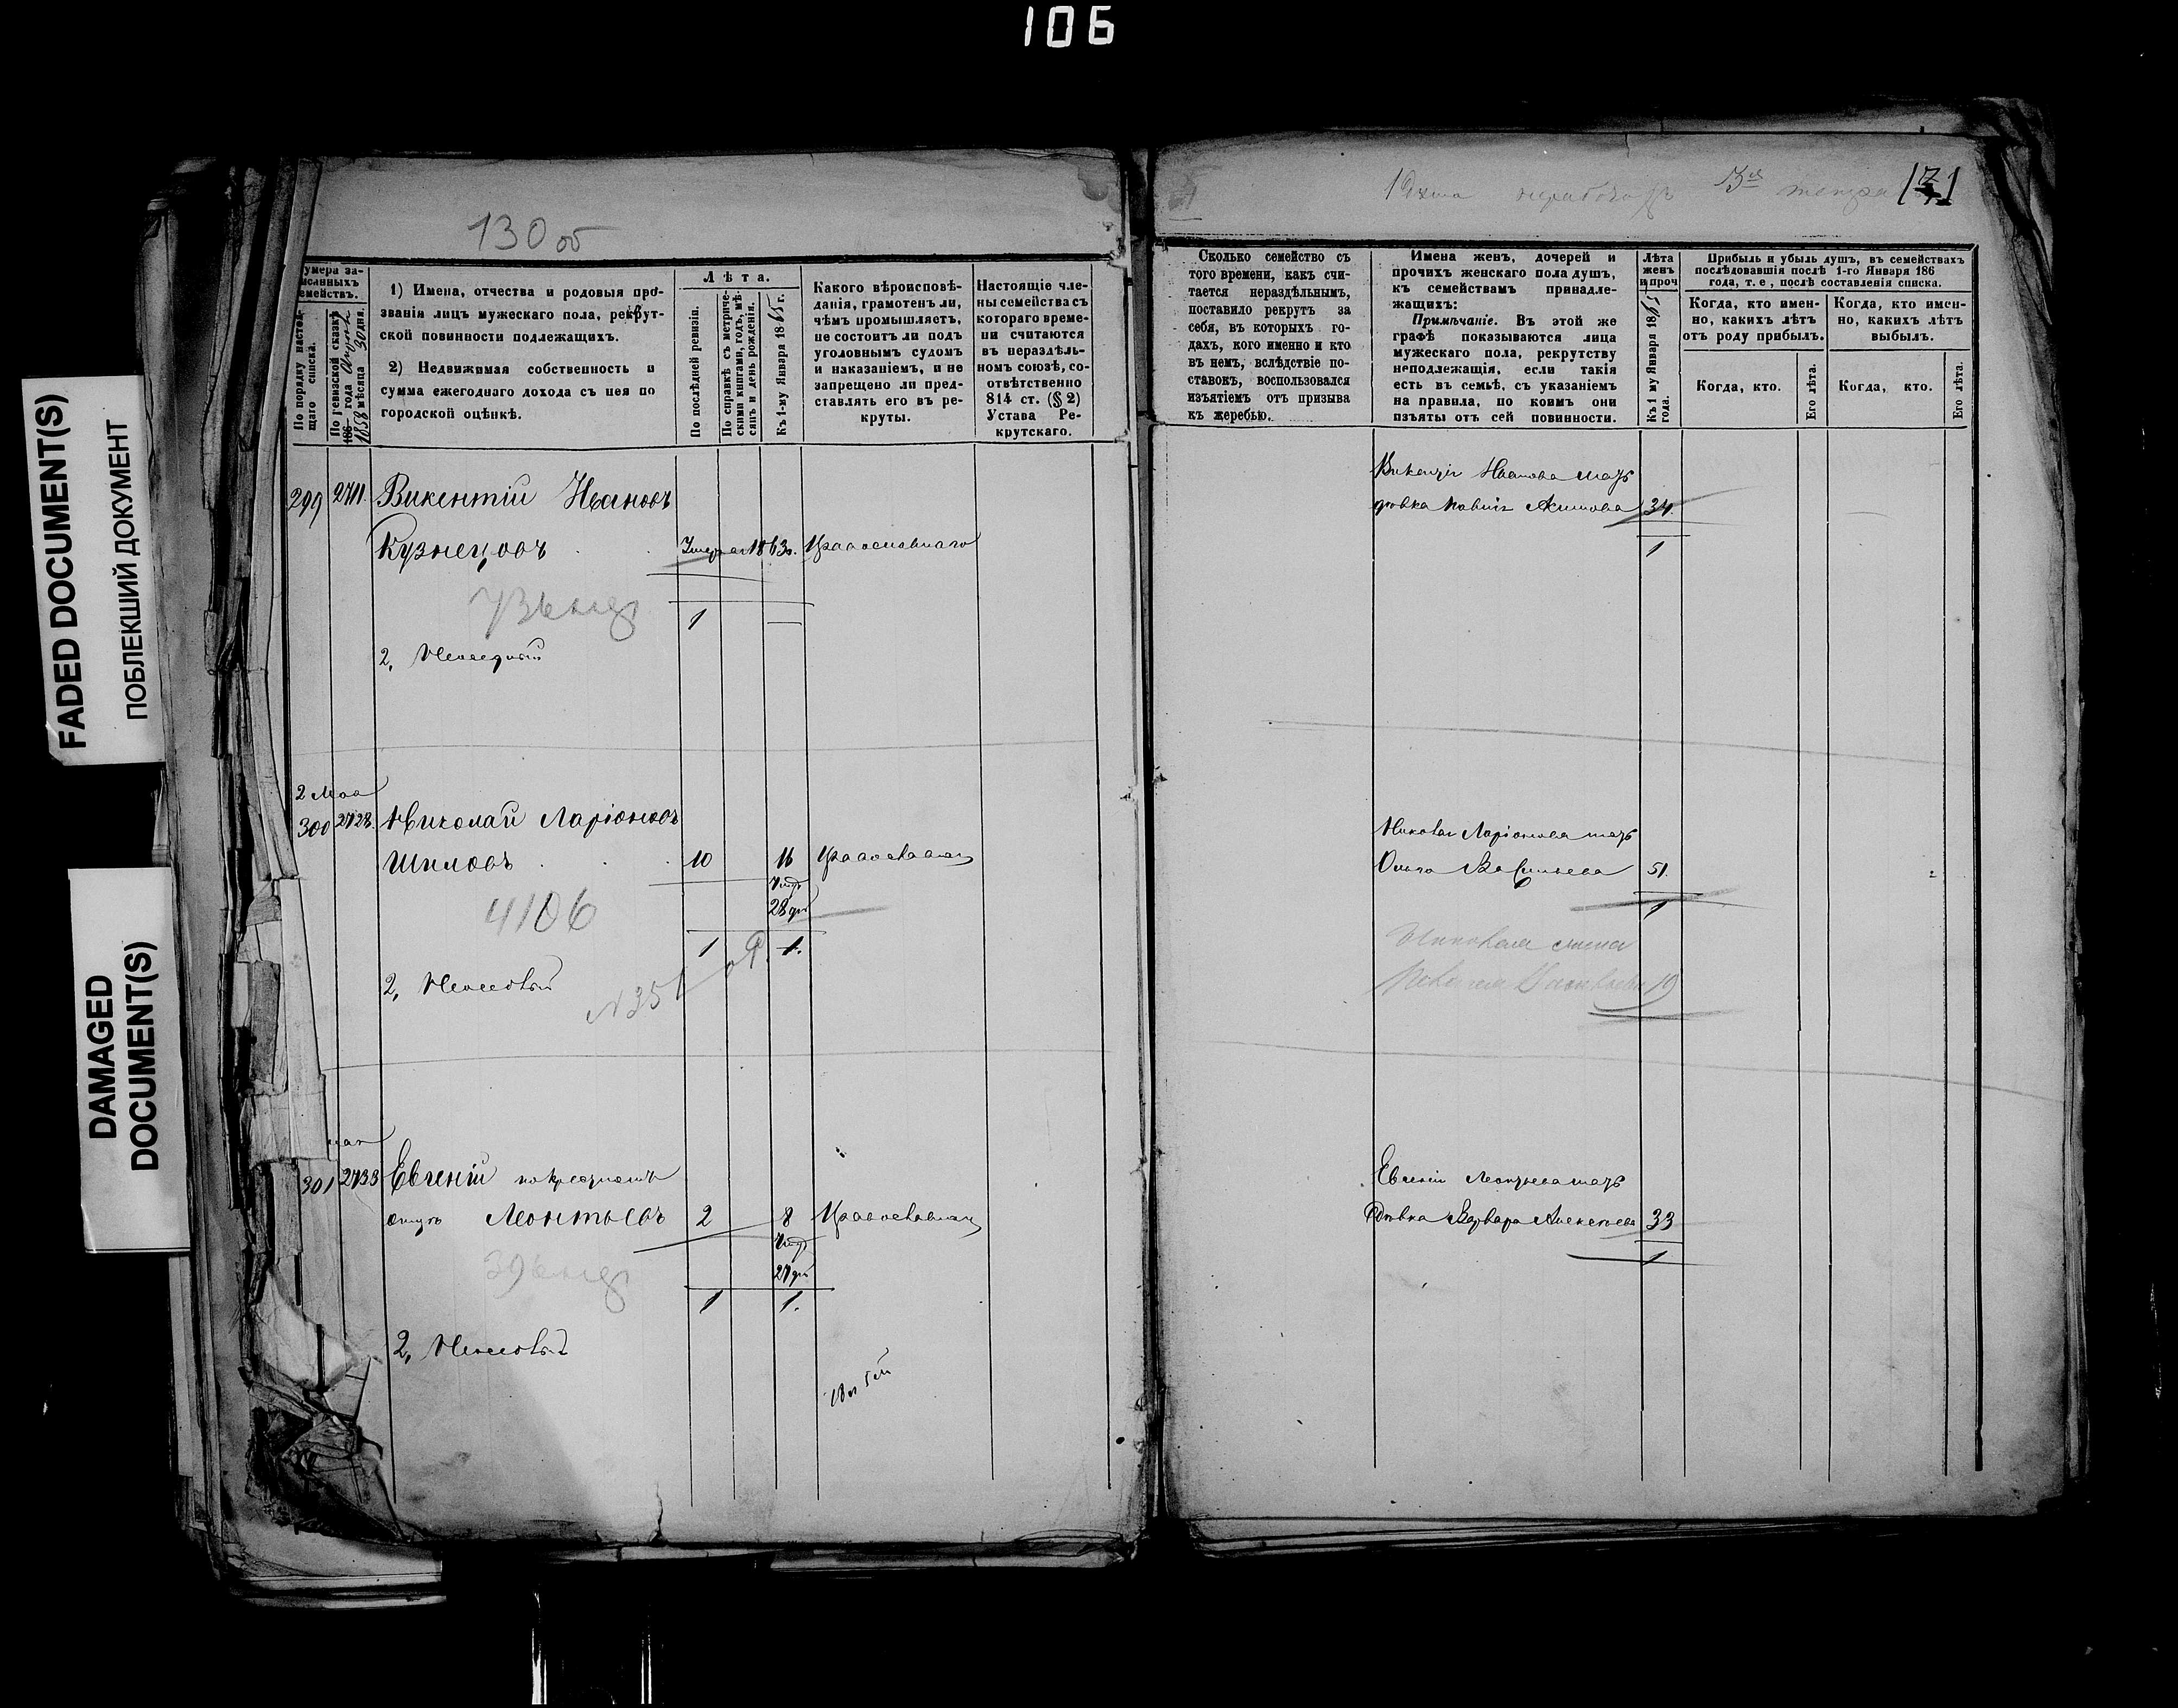 106
FADED DOCUMENT(S)
ПОБЛЕКШИЙ ДОКУМЕНТ
DAMAGED
DOCUMENT(S)
130 об
умера за-
исанныхъ
емействъ.
По порядку настоя-
щаго списка.
По ревизской сказкѣ
186 года
1858 мѣсяца 30 дня.
1) Имена, отчества и родовыя про-
званія лицъ мужескаго пола, рекрут-
ской повинности подлежащихъ.
2) Недвижимая собственность и
сумма ежегоднаго дохода съ нея по
городской оцѣнкѣ.
Лѣта.
По послѣдней ревизіи.
По справкѣ съ метриче-
скими книгами, годъ, мѣ-
сяцъ и день рожденія.
Къ 1-му Января 1865 г.
Какого вѣроисповѣ-
данія, грамотенъ ли,
чѣмъ промышляетъ,
не состоитъ ли подъ
уголовнымъ судомъ
и наказаніемъ, и не
запрещено ли пред-
ставлять его въ ре-
круты.
Настоящіе чле-
ны семейства съ
котораго време-
ни считаются
въ нераздѣль-
номъ союзѣ, со-
отвѣтственно
814 ст. (§ 2)
Устава Ре-
крутскаго.
299 2711. Викентій Ивановъ
Кузнецовъ 1863 г. Православнаго
1
2,
2 Мая
300 2728 Николай Ларіоновъ
Шиловъ 10 16 Православнаго
28 дн
4106
1 1.
2,
N 251
301 2733 Евгеній по крестному
отцу Леонтьевъ 2 8 Православнаго
27 дн
1 1.
2,
171
Сколько семейство съ
того времени, какъ счи-
тается нераздѣльнымъ,
поставило рекрутъ за
себя, въ которыхъ го-
дахъ, кого именно и кто
въ немъ, вслѣдствіе по-
ставокъ, воспользовался
изъятіемъ отъ призыва
къ жеребью.
Имена женъ, дочерей и
прочихъ женскаго пола душъ,
къ семействамъ принадле-
жащихъ:
Примѣчаніе. Въ этой же
графѣ показываются лица
мужескаго пола, рекрутству
неподлежащія, если такія
есть въ семьѣ, съ указаніемъ
на правила, по коимъ они
изъяты отъ сей повинности.
Лѣта
женъ
и проч
Къ 1 му Января 1865
года.
Прибыль и убыль душъ, въ семействахъ
послѣдовавшія послѣ 1-го Января 186
года, т. е, послѣ составленія списка.
Когда, кто имен-
но, какихъ лѣтъ
отъ роду прибылъ.
Когда, кто имен-
но, какихъ лѣтъ
выбылъ.
Когда, кто.
Его лѣта.
Когда, кто.
Его лѣта.
Викентія Иванова мать
Акимова 34.
1
Николая Ларіонова мать
Васильева 51.
1
19
Евгенія Леонтьева мать
Варвара Алексѣева 33
1